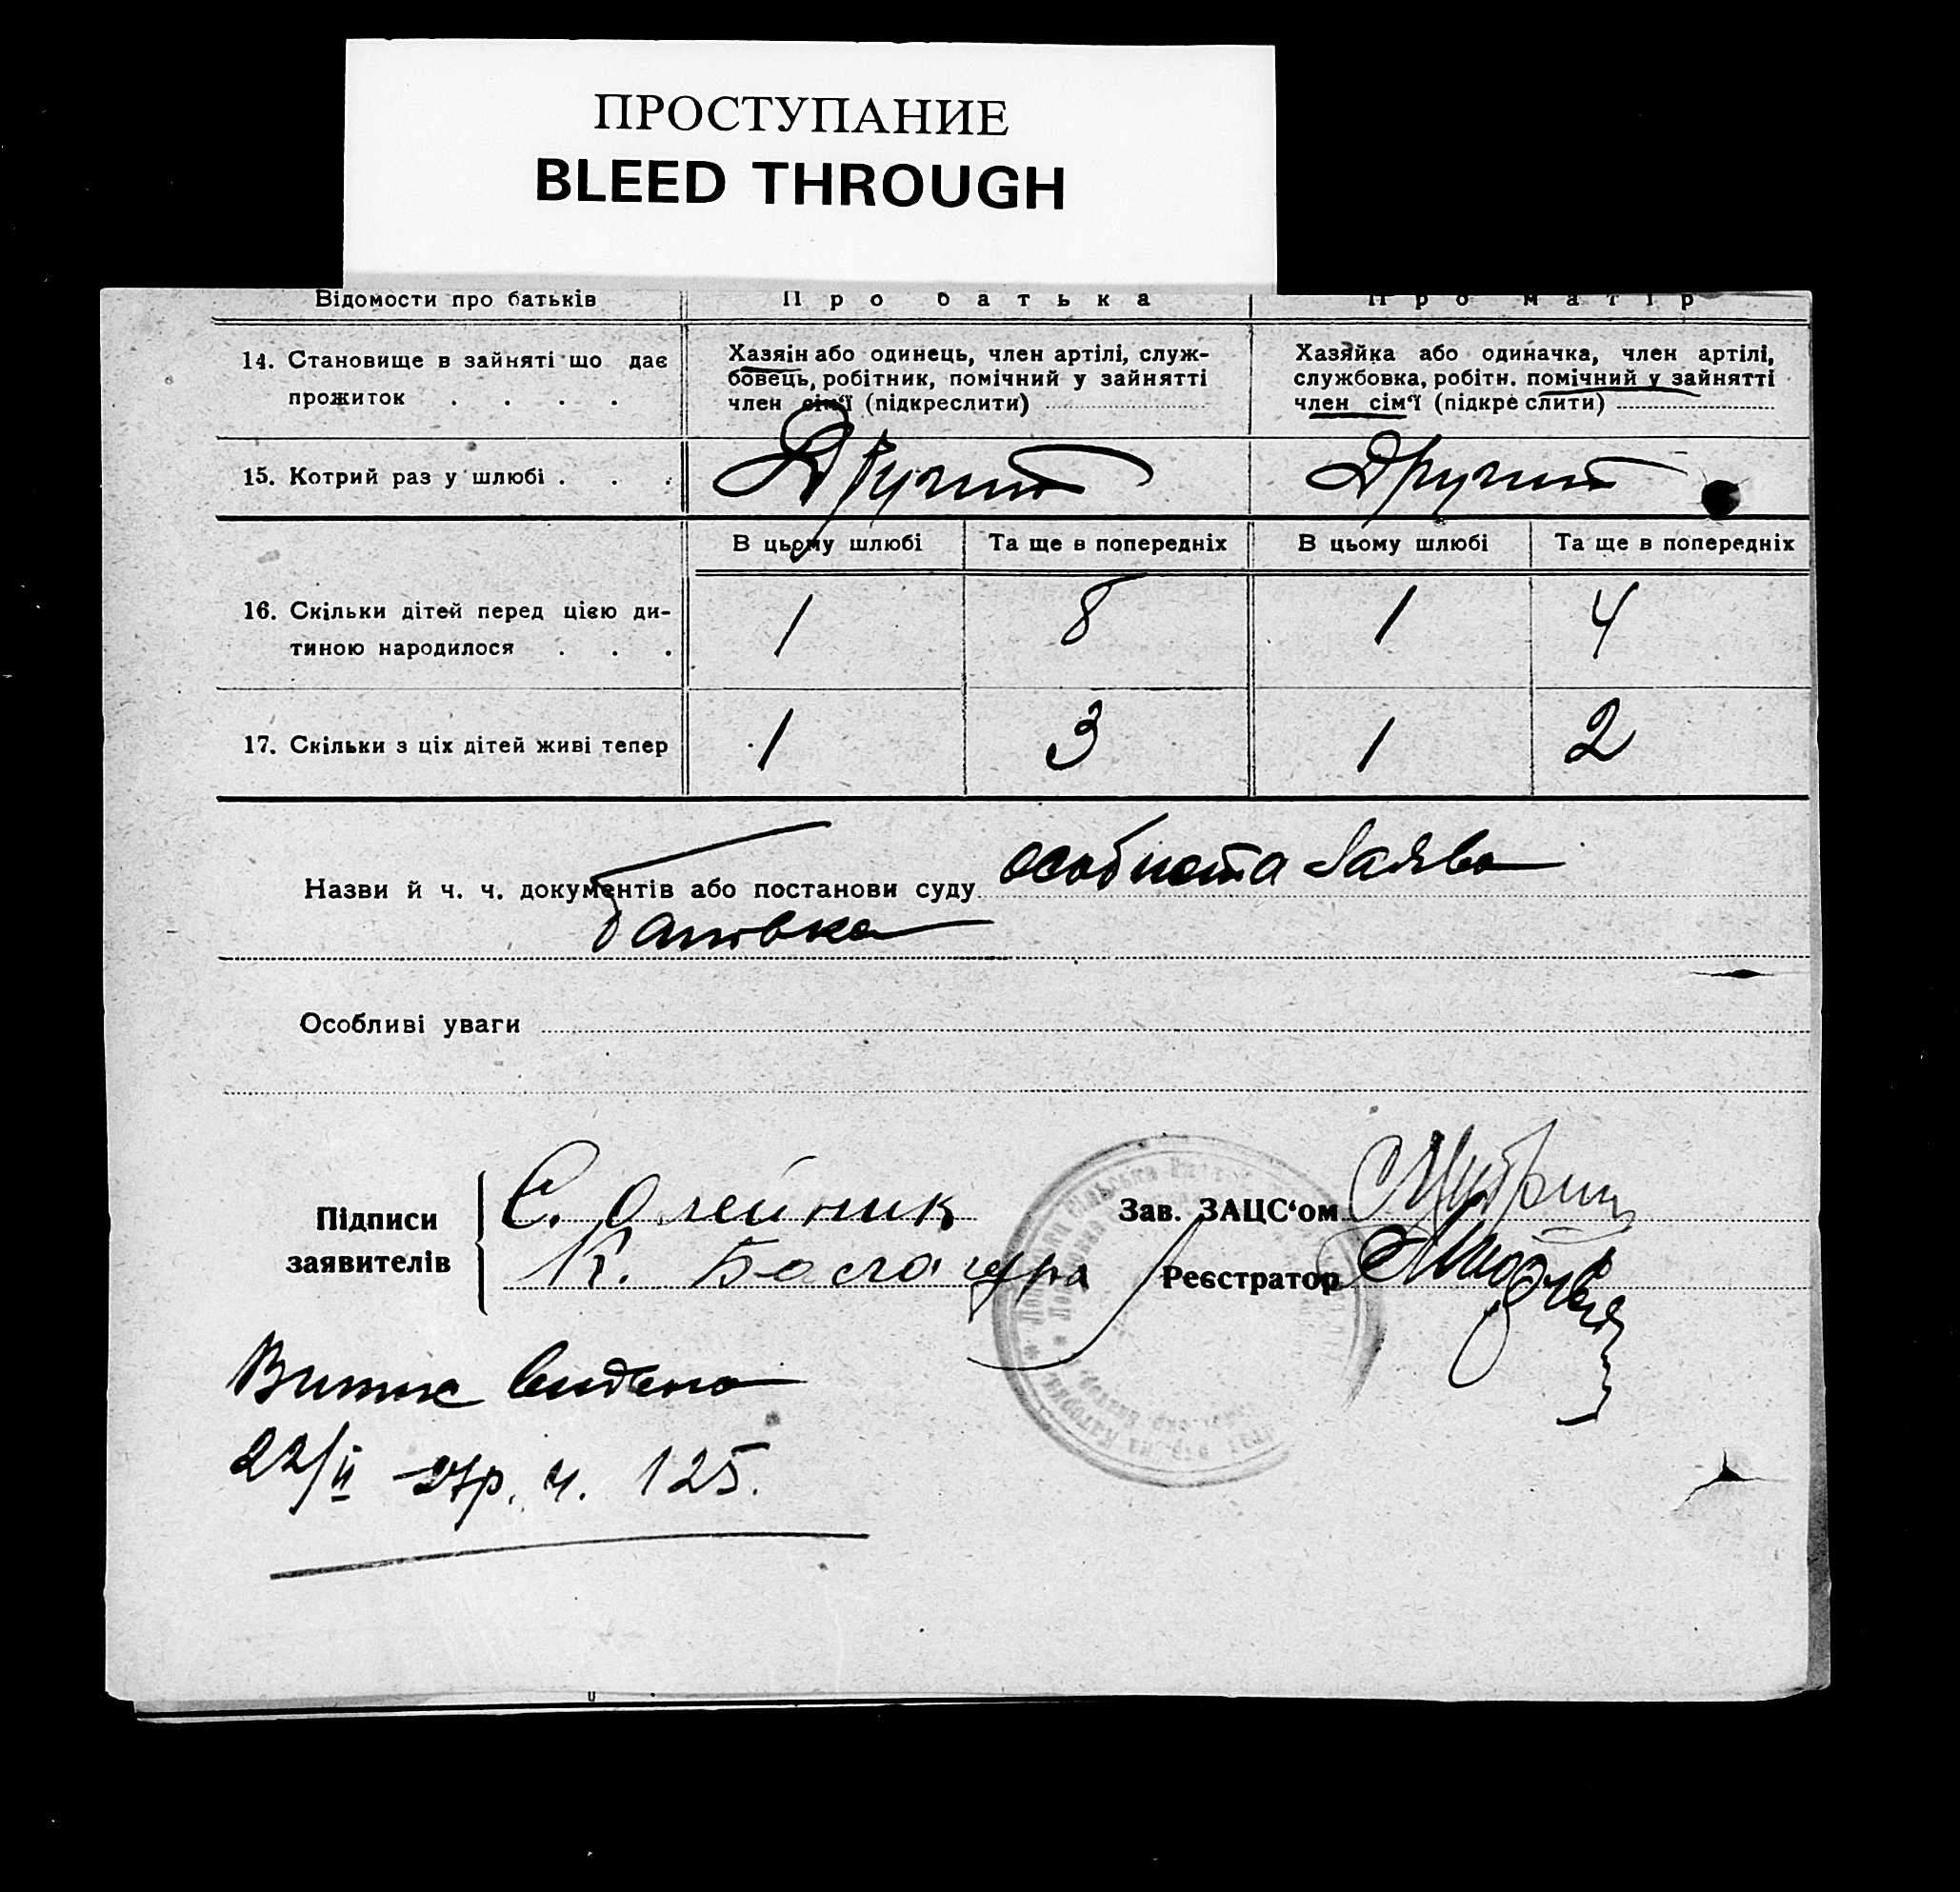 ПРОСТУПАНИЕ
BLEED THROUGH
Відомости про батьків Про батька Про матір
14. Становище в зайняті що дає прожиток . . . .
Хазяін або одинець, член артілі, служ-
бовець, робітник, помічний у зайнятті
член сім'ї (підкреслити)
Хазяйка або одиначка, член артілі,
службовка, робітн. помічний у зайнятті
член сім'ї (підкреслити)
15. Котрий раз у шлюбі . . . Другий Другий
В цьому шлюбі Та ще в попередніх В цьому шлюбі Та ще в попередніх
16. Скільки дітей перед цією ди-
тиною народилося . . . 1 8 1 4
17. Скільки з ціх дітей живі тепер 1 3 1 2
Назви й ч. ч. документів або постанови суду особиста заява
батька
Особливі уваги
Підписи
заявителів
Є. Олейник
К. Балацура
Зав. ЗАЦС'ом
Реєстратор
Витяг видано
22/II 27р. ч. 125.